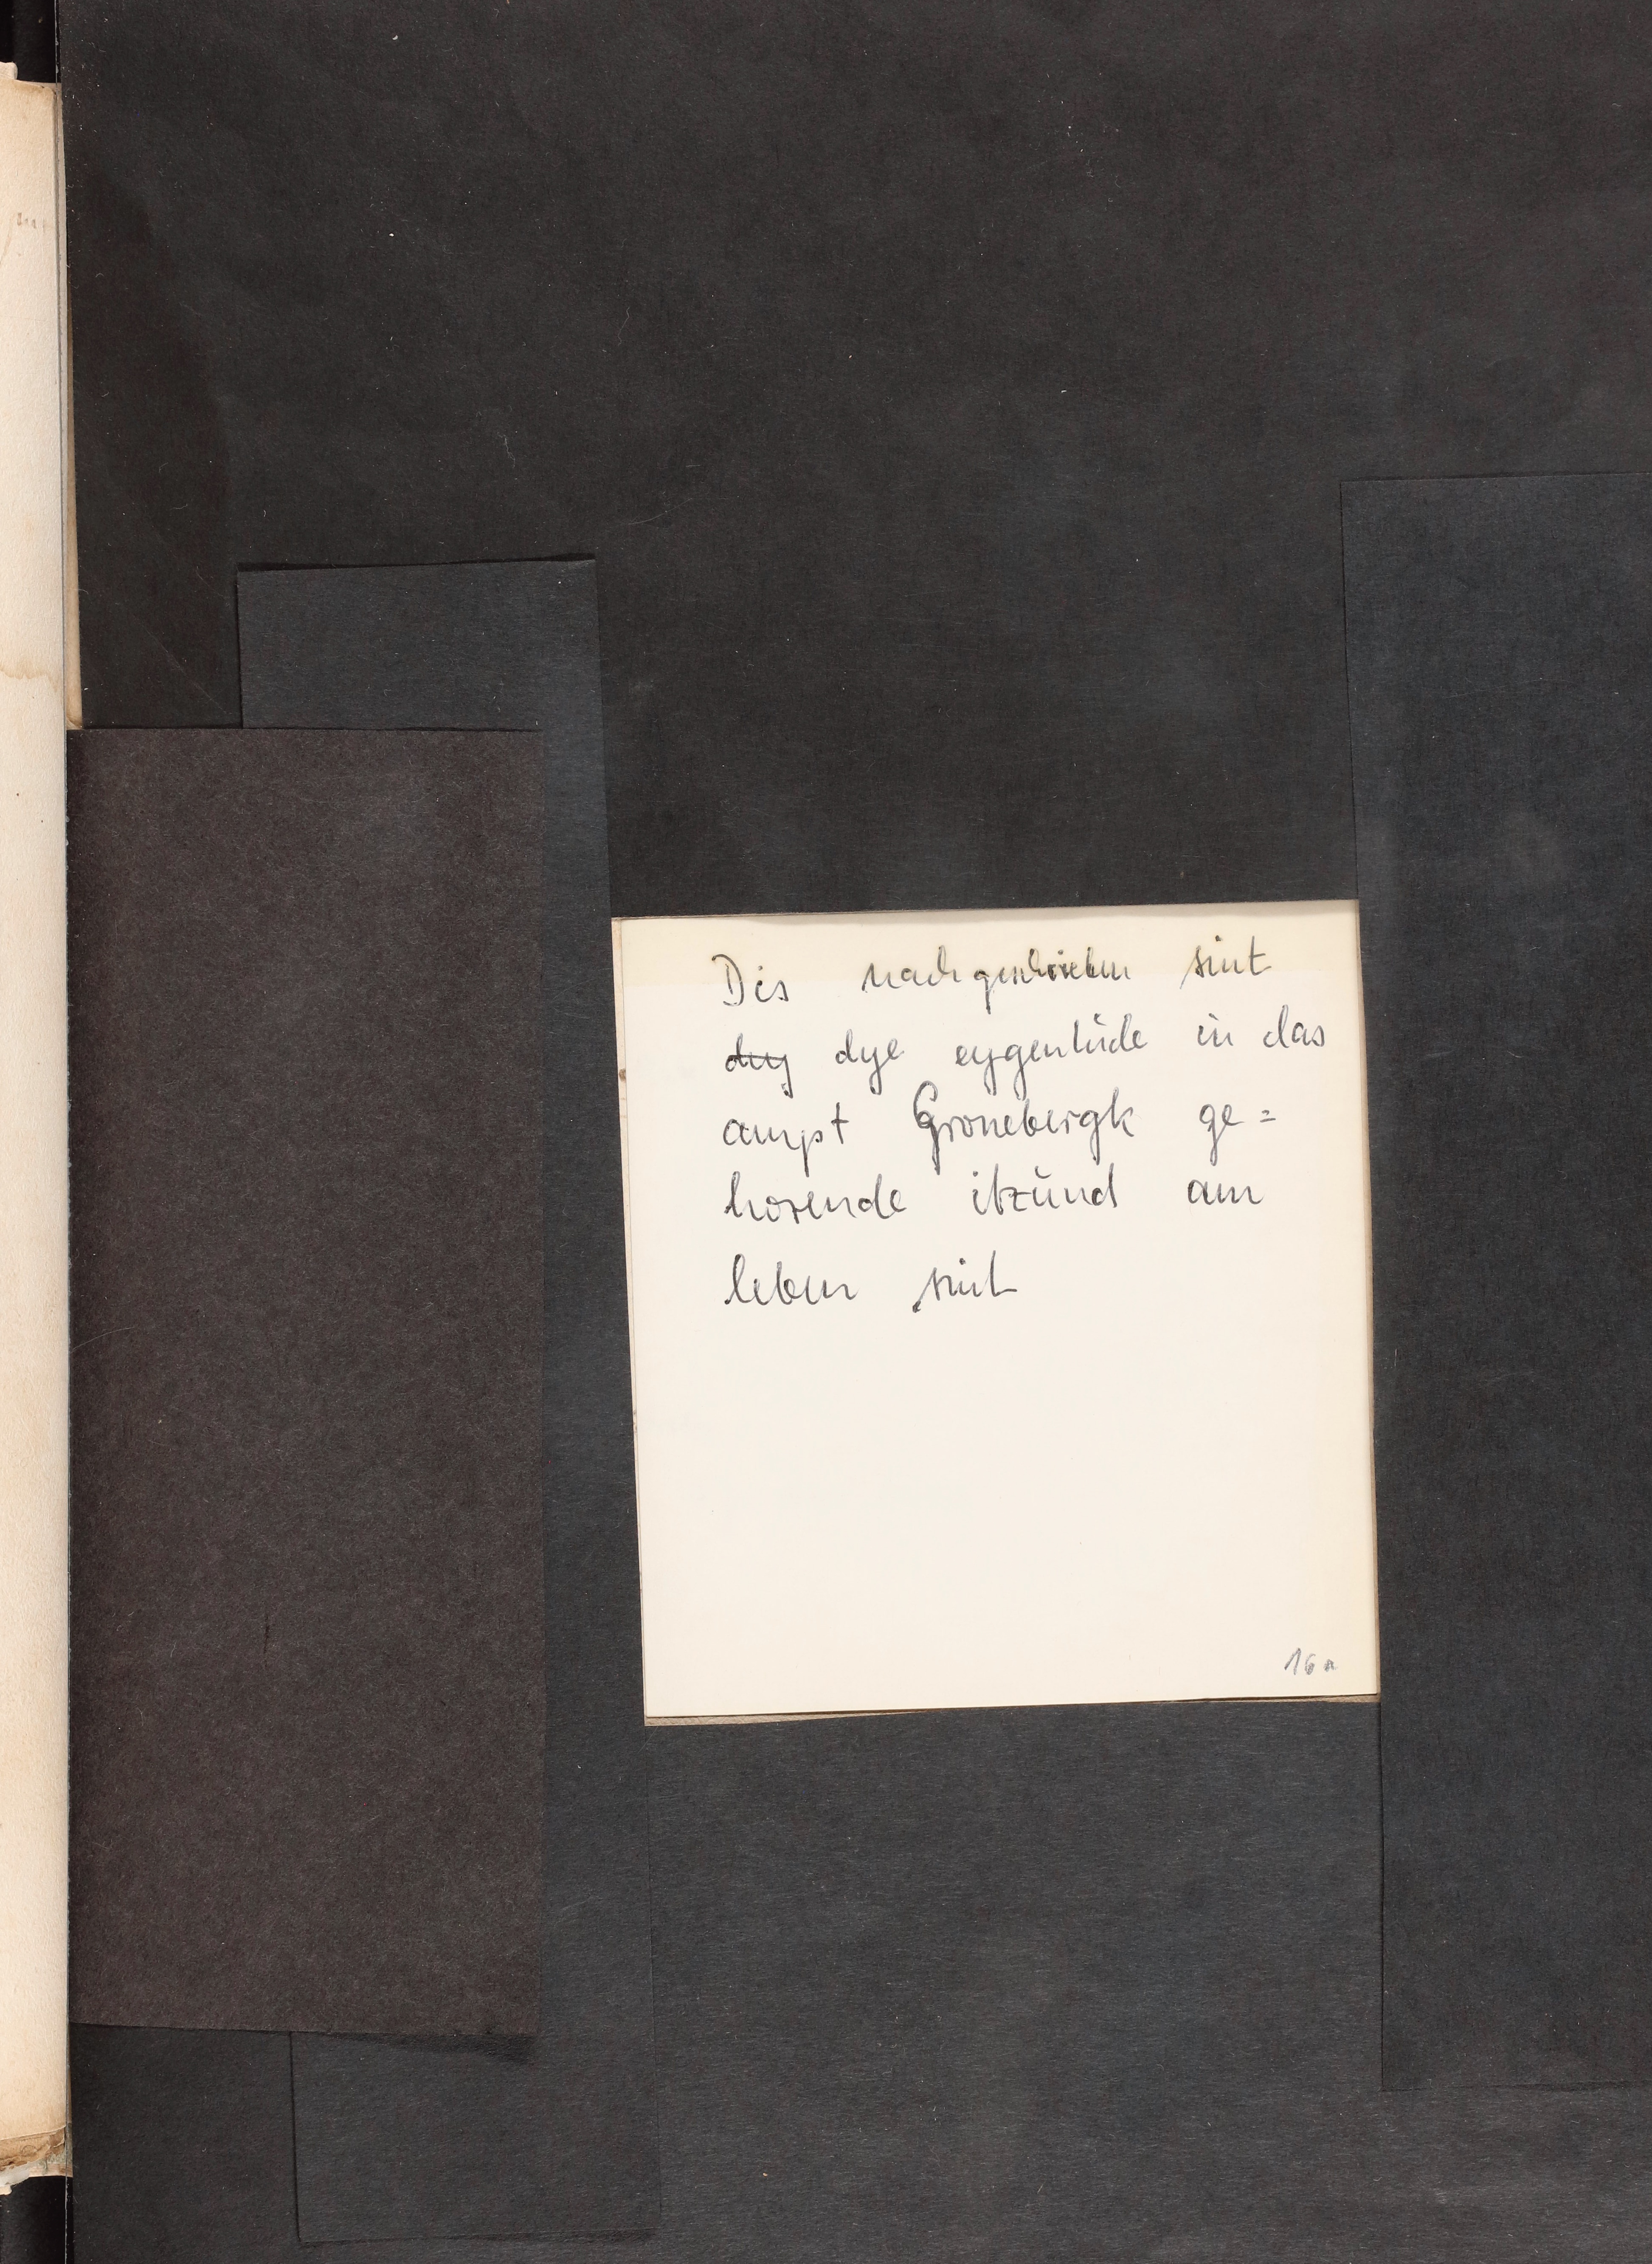 Dis nachgeschrieben sint
dey dye eygenlüde in das
ampt Gronebergk ge=
horende itzünd am
leben sint
16a